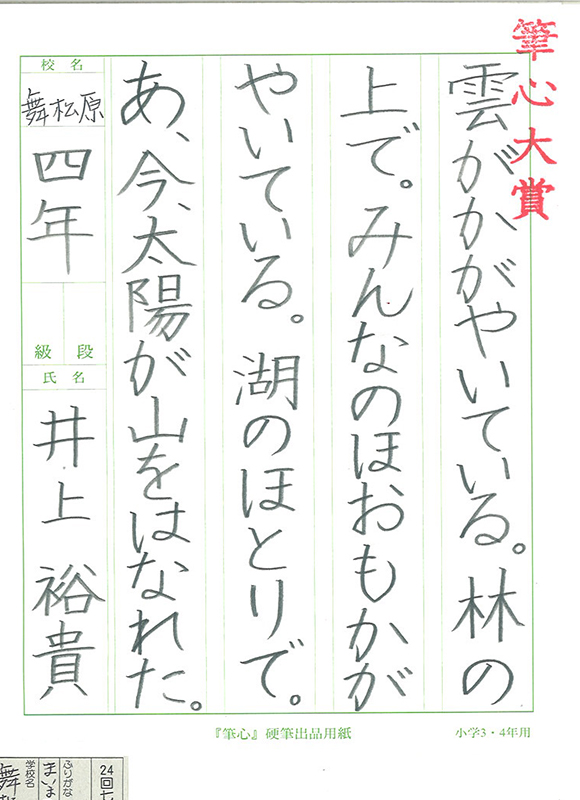 筆心大賞
雲がかがやいている。林の
上で。みんなのほおもかが
やいている。湖のほとりで。
あ、今、太陽が山をはなれた。
校名
舞松原
四年
級段
氏名
井上 裕貴
『筆心』硬筆出品用紙
小学3・4年用
24回
ふりがな
まいま
学校名
舞松